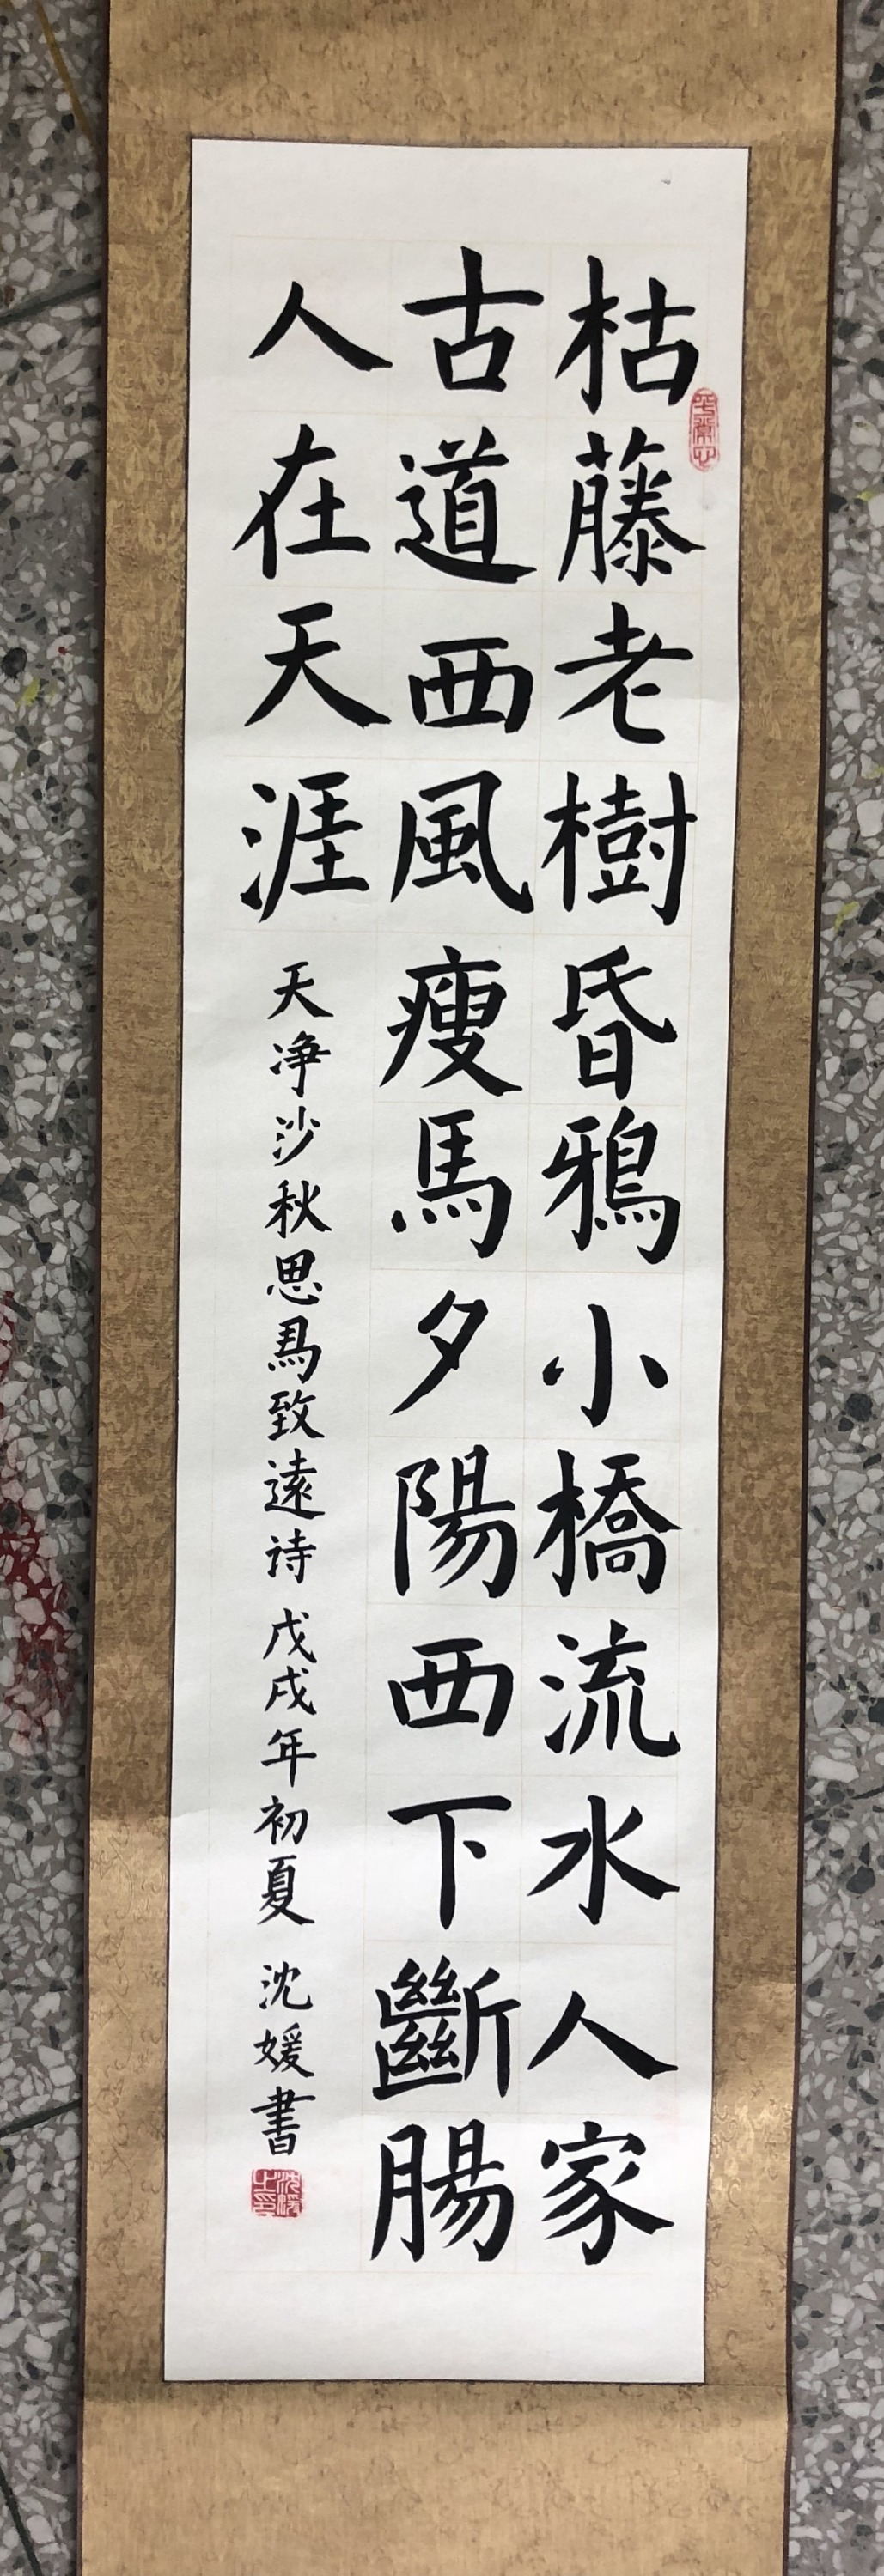 枯藤老樹昏鴉小橋流水人家
古道西風瘦馬夕陽西下斷腸
人在天涯
天净沙秋思馬致遠诗 戊戌年初夏 沈媛書
平常心
沈媛之印